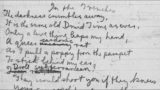 In the Trenches
The darkness crumbles away,
It is the same old Druid Time as ever.
Only a live thing leaps my hand,
A queer sardonic rat
As I pull a poppy from the parapet
To stick behind my ear.
Droll
They would shoot you if they knew